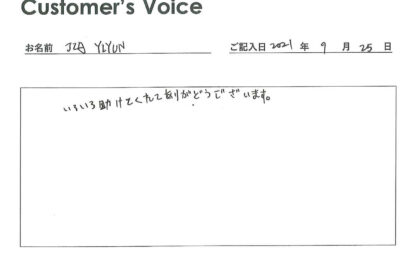 Customer's Voice
お名前 JIA YUYUN ご記入日 2021 年 9 月 25 日
いろいろ助けてくれて有りがどうございます。